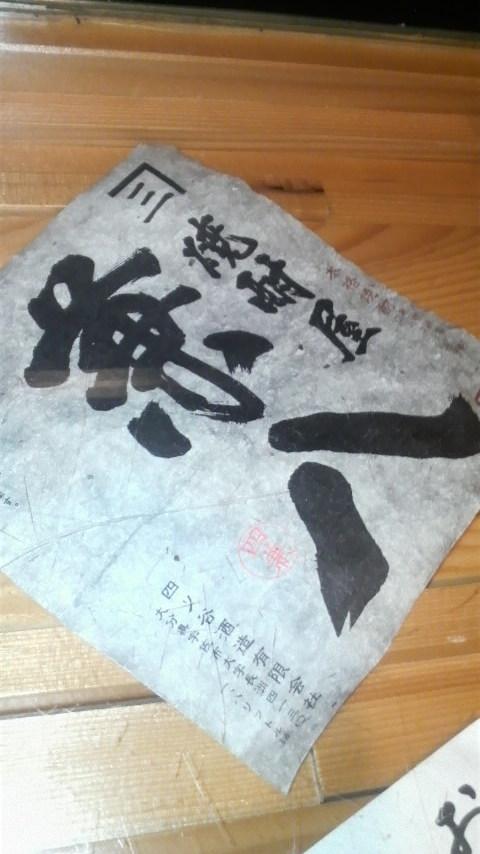 三
本格焼酎
焼酎屋
兼八
四ッ谷酒造有限会社
大分県宇佐市大字長洲四一三〇
お